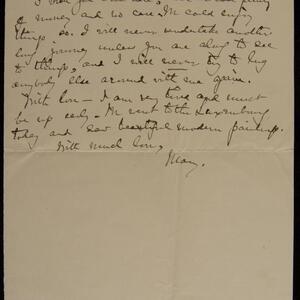 of money and no care. We could enjoy
things so. I will never undertake another
long journey unless you are along to see
to things, and I will never try to lug
anybody else around with me again.
With love - I am very tired and must
be up early - We went to the Luxembourg
today and saw beautiful modern paintings.
With much love,
Mary.